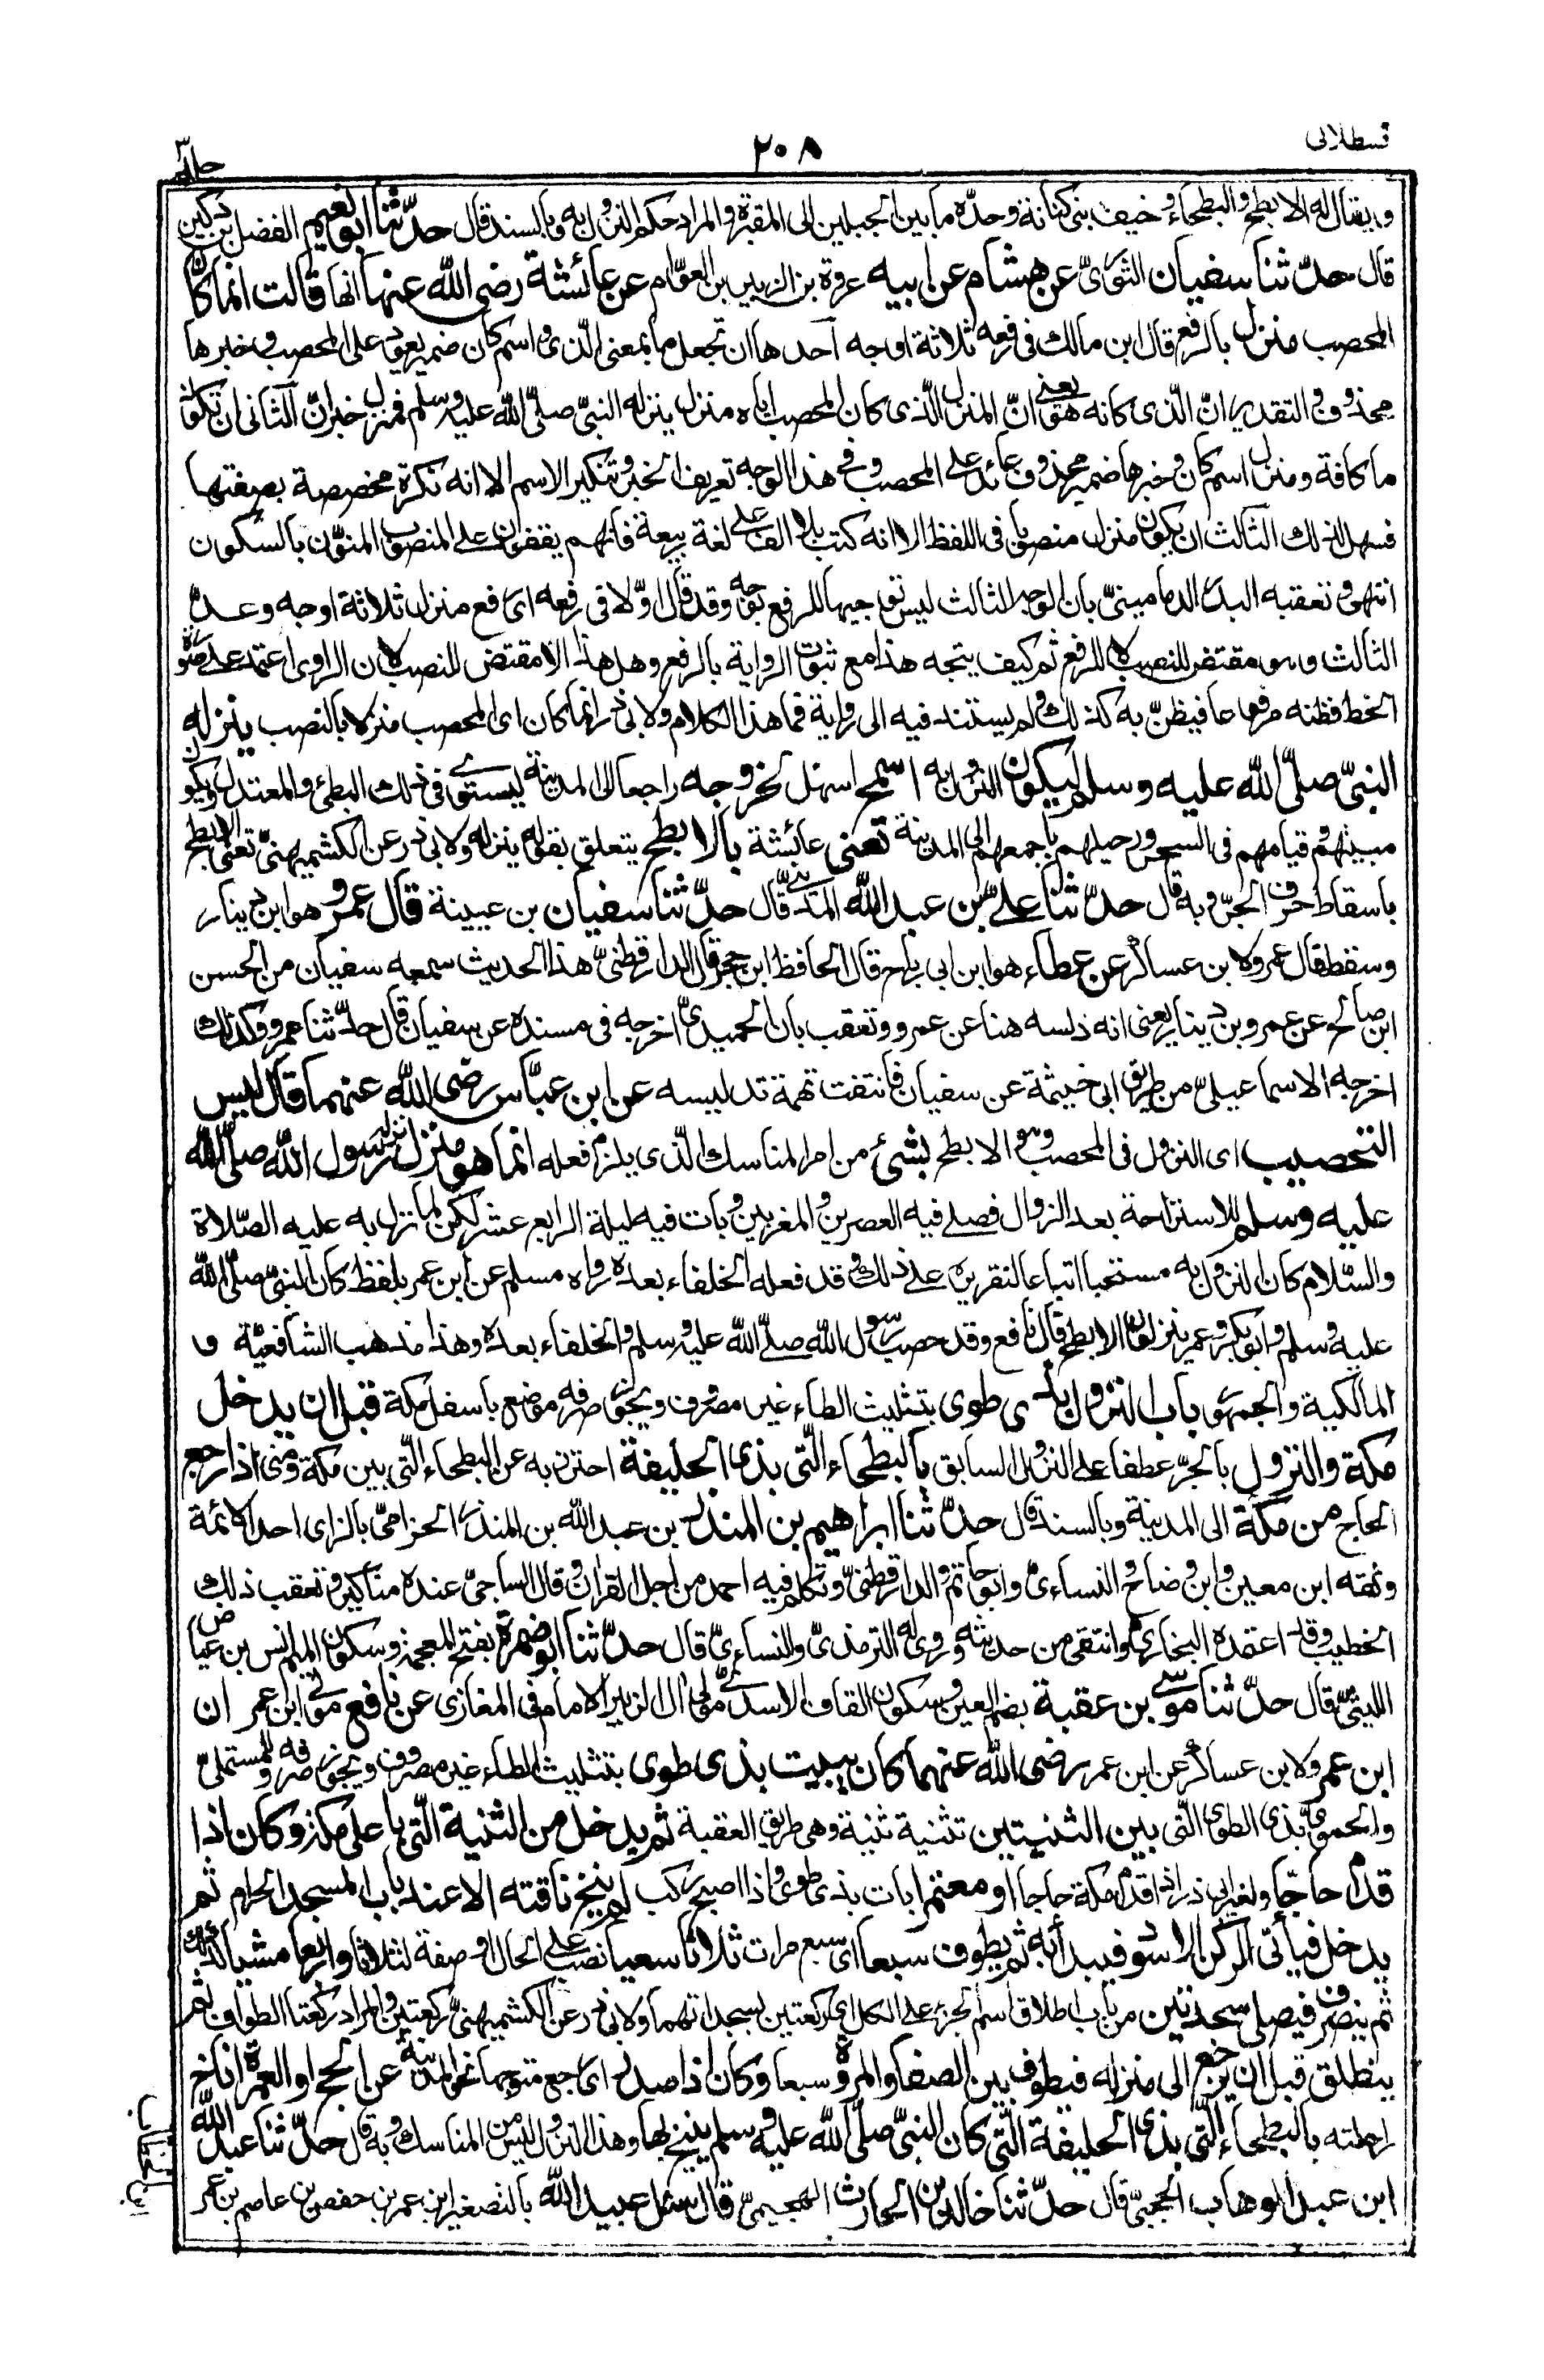 قسطلانى
٢٠٨
جلد ٣
ويقال له الابطح والبطحاء وخيف بنى كنانة وحدّه ما بين الجبلين الى المقبرة والمراد حكم النزول به وبالسند قال حدّثنا ابو نعيم الفضل بن دكين
قال حدّثنا سفيان الثورىّ عن هشام عن ابيه عروة بن الزبير بن العوّام عن عائشة رضى الله عنها انها قالت انما كان
المحصب منزل بالرفع قال ابن مالك فى رفعه ثلاثة اوجه احدها ان تجعل ما بمعنى الّذى واسم كان ضمير يعود على المحصب وخبرها
محذوف والتقدير انّ الّذى كانه هو يعنى انّ المنزل الّذى كان المحصب اياه منزل ينزله النبىّ صلّى الله عليه وسلم فمنزل خبر انّ الثانى ان تكون
ما كافة ومنزل اسم كان وخبرها ضمير محذوف عائد على المحصب وفى هذا الوجه تعريف الخبر وتنكير الاسم الا انه نكرة مخصصة بصفتها
فسهل لذلك الثالث ان يكون منزل منصوبا فى اللفظ الا انه كتب بلا الف على لغة ربيعة فانهم يقفون على المنصوب المنوّن بالسكون
انتهى وتعقبه البدر الدمامينىّ بان الوجه الثالث ليس توجيها للرفع بوجه وقد قال اوّلا فى رفعه اى رفع منزل ثلاثة اوجه وعدّ
الثالث وهو مقتض للنصب لا للرفع ثم كيف يتجه هذا مع ثبوت الرواية بالرفع وهل هذا الا مقتض للنصب لان الراوى اعتمد على صورة
الخط فظنه مرفوعا فيظنّ به كذلك ولم يستند فيه الى رواية فما هذا الكلام ولابى ذر انما كان اى المحصب منزلا بالنصب ينزله
النبىّ صلّى الله عليه وسلم ليكون النزول به اسمح اسهل لخروجه راجعا الى المدينة ليستوى فى ذلك البطئ والمعتدل ويكون
مبيتهم وقيامهم فى السحر ورحيلهم باجمعهم الى المدينة تعنى عائشة بالابطح يتعلق بقوله ينزله ولابى ذر عن الكشميهنىّ تعنى الابطح
باسقاط حرف الجرّ وبه قال حدّثنا علىّ بن عبد الله المدينىّ قال حدّثنا سفيان بن عيينة قال عمرو هو ابن دينار
وسقط قال عمرو لابن عساكر عن عطاء هو ابن ابى رباح قال الحافظ ابن حجر قال الدارقطنىّ هذا الحديث سمعه سفيان من الحسن
ابن صالح عن عمرو بن دينار يعنى انه دلسه هنا عن عمرو وتعقب بان الحميدىّ اخرجه فى مسنده عن سفيان قال حدّثنا عمرو وكذلك
اخرجه الاسماعيلىّ من طريق ابى خيثمة عن سفيان فانتفت تهمة تدليسه عن ابن عبّاس رضى الله عنهما قال ليس
التحصيب اى النزول فى المحصب وهو الابطح بشئ من امر المناسك الّذى يلزم فعله انما هو منزل نزله رسول الله صلّى الله
عليه وسلم للاستراحة بعد الزوال فصلى فيه العصرين والمغربين وبات فيه ليلة الرابع عشر لكن لما نزل به عليه الصّلاة
والسّلام كان النزول به مستحبا اتباعا لتقريره على ذلك وقد فعله الخلفاء بعده رواه مسلم عن ابن عمر بلفظ كان النبىّ صلّى الله
عليه وسلم وابو بكر وعمر ينزلون الابطح قال نافع وقد حصب رسول الله صلّى الله عليه وسلم والخلفاء بعده وهذا مذهب الشافعيّة و
المالكية والجمهور باب النزول بذى طوى بتثليث الطاء غير مصروف ويجوز صرفه موضع باسفل مكة قبل ان يدخل
مكة والنزول بالجرّ عطفا على النزول السابق بالبطحاء الّتى بذى الحليفة احترز به عن البطحاء الّتى بين مكة ومنى اذا رجع
الحاج من مكة الى المدينة وبالسند قال حدّثنا ابراهيم بن المنذر بن عبد الله بن المنذر الحزامىّ بالزاى احد الائمة
وثقه ابن معين وابن وضاح والنساءىّ وابو حاتم والدارقطنىّ وتكلم فيه احمد من اجل القران وقال الساجىّ عنده مناكير وتعقب ذلك
الخطيب وقد اعتمده البخارىّ وانتقى من حديثه وروى له الترمذىّ والنساءىّ قال حدّثنا ابو ضمرة بفتح المعجمة وسكون الميم انس بن عياض
الليثىّ قال حدّثنا موسى بن عقبة بضم العين وسكون القاف الاسدىّ مولى ال الزبير الامام فى المغازى عن نافع مولى ابن عمر ان
ابن عمر ولابن عساكر عن ابن عمر رضى الله عنهما كان يبيت بذى طوى بتثليث الطاء غير مصروف ويجوز صرفه وللمستملىّ
والحموىّ بذى الطوى الّتى بين الثنيتين تثنية ثنية وهى طريق العقبة ثم يدخل من الثنية الّتى باعلى مكة وكان اذا
قدم حاجّا ولغير ابى ذر اذا قدم مكة حاجا او معتمرا بات بذى طوى واذا اصبح ركب لم ينخ ناقته الا عند باب المسجد الحرام ثم
يدخل فيأتى الركن الاسود فيبدأ به ثم يطوف سبعا اى سبع مرات ثلاثا سعيا نصب على الحال او صفة لثلاثا واربعا مشيا كذلك
ثم ينصرف فيصلى سجدتين من باب اطلاق اسم الجزء على الكل اى ركعتين بسجداتهما ولابى ذر عن الكشميهنىّ ركعتين والمراد ركعتا الطواف ثم
ينطلق قبل ان يرجع الى منزله فيطوف بين الصفا والمروة سبعا وكان اذا صدر اى رجع متوجها نحو المدينة عن الحج او العمرة اناخ
راحلته بالبطحاء الّتى بذى الحليفة الّتى كان النبىّ صلّى الله عليه وسلم ينيخ بها وهذا النزول ليس من المناسك وبه قال حدّثنا عبد الله
ابن عبد الوهاب الحجبىّ قال حدّثنا خالد بن الحارث الهجيمىّ قال سئل عبيد الله بالتصغير ابن عمر بن حفص بن عاصم بن عمر
ابن الخطاب